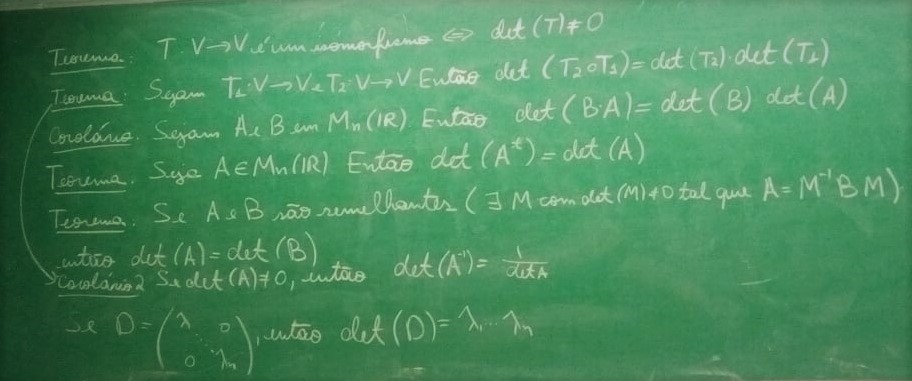 Teorema: T: V→V é um isomorfismo ⇔ det (T) ≠ 0
Teorema: Sejam T₁: V→V e T₂: V→V Então det (T₂∘T₁) = det (T₂)·det (T₁)
Corolário. Sejam A e B em Mn(IR) Então det (B·A) = det (B) det (A)
Teorema. Seja A ∈ Mn(IR) Então det (Aᵗ) = det (A)
Teorema. Se A e B são semelhantes (∃ M com det (M) ≠ 0 tal que A = M⁻¹ B M)
então det (A) = det (B)
Corolário 2 Se det (A) ≠ 0, então det (A⁻¹) = 1/det A
Se D = (λ ⋱ 0 0 λn), então det (D) = λ₁ ... λn